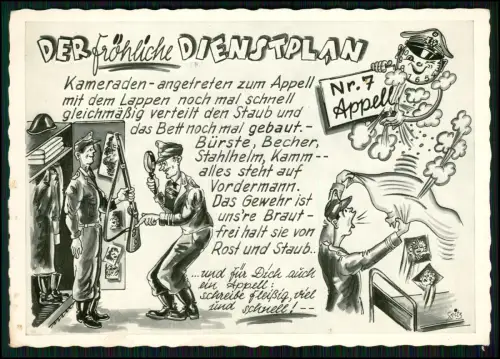 DER fröhliche DIENSTPLAN
Nr. 7
Appell
Kameraden - angetreten zum Appell
mit dem Lappen noch mal schnell
gleichmäßig verteilt den Staub und
das Bett noch mal gebaut. -
Bürste, Becher,
Stahlhelm, Kamm --
alles steht auf
Vordermann.
Das Gewehr ist
uns're Braut -
frei halt sie von
Rost und Staub..
...und für Dich auch
ein Appell:
schreibe fleißig, viel
und schnell! --